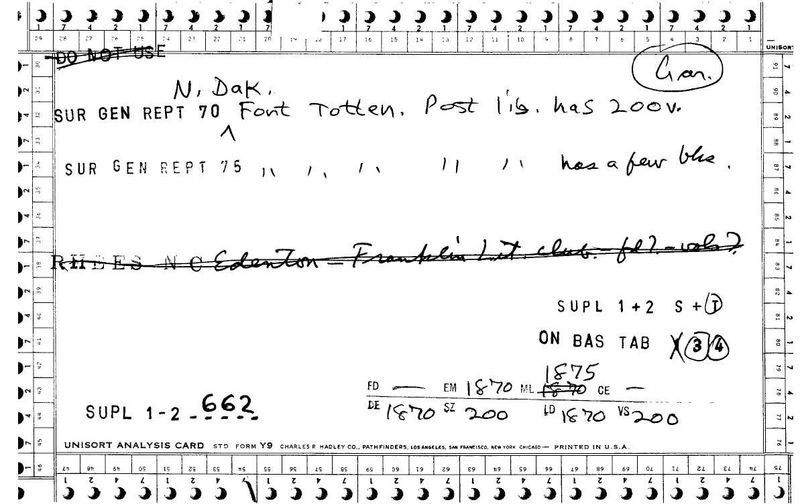 DO NOT USE
Gar.
N. Dak.
SUR GEN REPT 70 ^ Fort Totten. Post lib. has 200v.
SUR GEN REPT 75 " " " " " has a few bks.
RHEES NC Edenton – Franklin Lit club. – fd? – vols?
SUPL 1+2 S+I
ON BAS TAB X 3 4
1875
FD — EM 1870 ML 1870 CE —
DE 1870 SZ 200 LD 1870 VS 200
SUPL 1-2 662
UNISORT ANALYSIS CARD STD FORM Y9 CHARLES R HADLEY CO., PATHFINDERS, LOS ANGELES, SAN FRANCISCO, NEW YORK CHICAGO — PRINTED IN U.S.A.